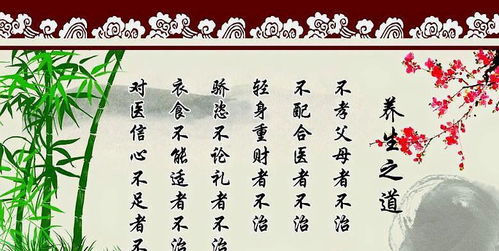 养生之道
不孝父母者不治
不配合医者不治
轻身重财者不治
骄恣不论礼者不治
衣食不能适者不治
对医信心不足者不